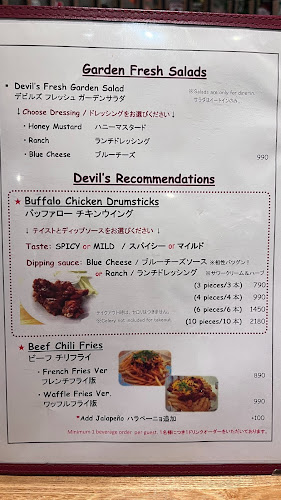 Garden Fresh Salads
• Devil's Fresh Garden Salad
デビルズ フレッシュ ガーデンサラダ
※Salads are only for dine-in.
サラダはイートインのみ。
↓Choose Dressing / ドレッシングをお選びください↓
・Honey Mustard ハニーマスタード
・Ranch ランチドレッシング
・Blue Cheese ブルーチーズ 990
Devil's Recommendations
★ Buffalo Chicken Drumsticks
バッファロー チキンウイング
↓ テイストとディップソースをお選びください ↓
Taste: SPICY or MILD / スパイシー or マイルド
Dipping sauce: Blue Cheese / ブルーチーズソース ※相性バッグン!
or Ranch / ランチドレッシング ※サワークリーム&ハーブ
(3 pieces/3 本) 790
(4 pieces/4 本) 990
(6 pieces/6 本) 1450
(10 pieces/10 本) 2180
※Celery not included for takeout.
★ Beef Chili Fries
ビーフ チリフライ
・French Fries Ver.
フレンチフライ版 890
・Waffle Fries Ver.
ワッフルフライ版 990
*Add Jalapeño ハラペーニョ追加 +100
Minimum 1 beverage order per guest. 1名様につき1ドリンクオーダーをいただいております。